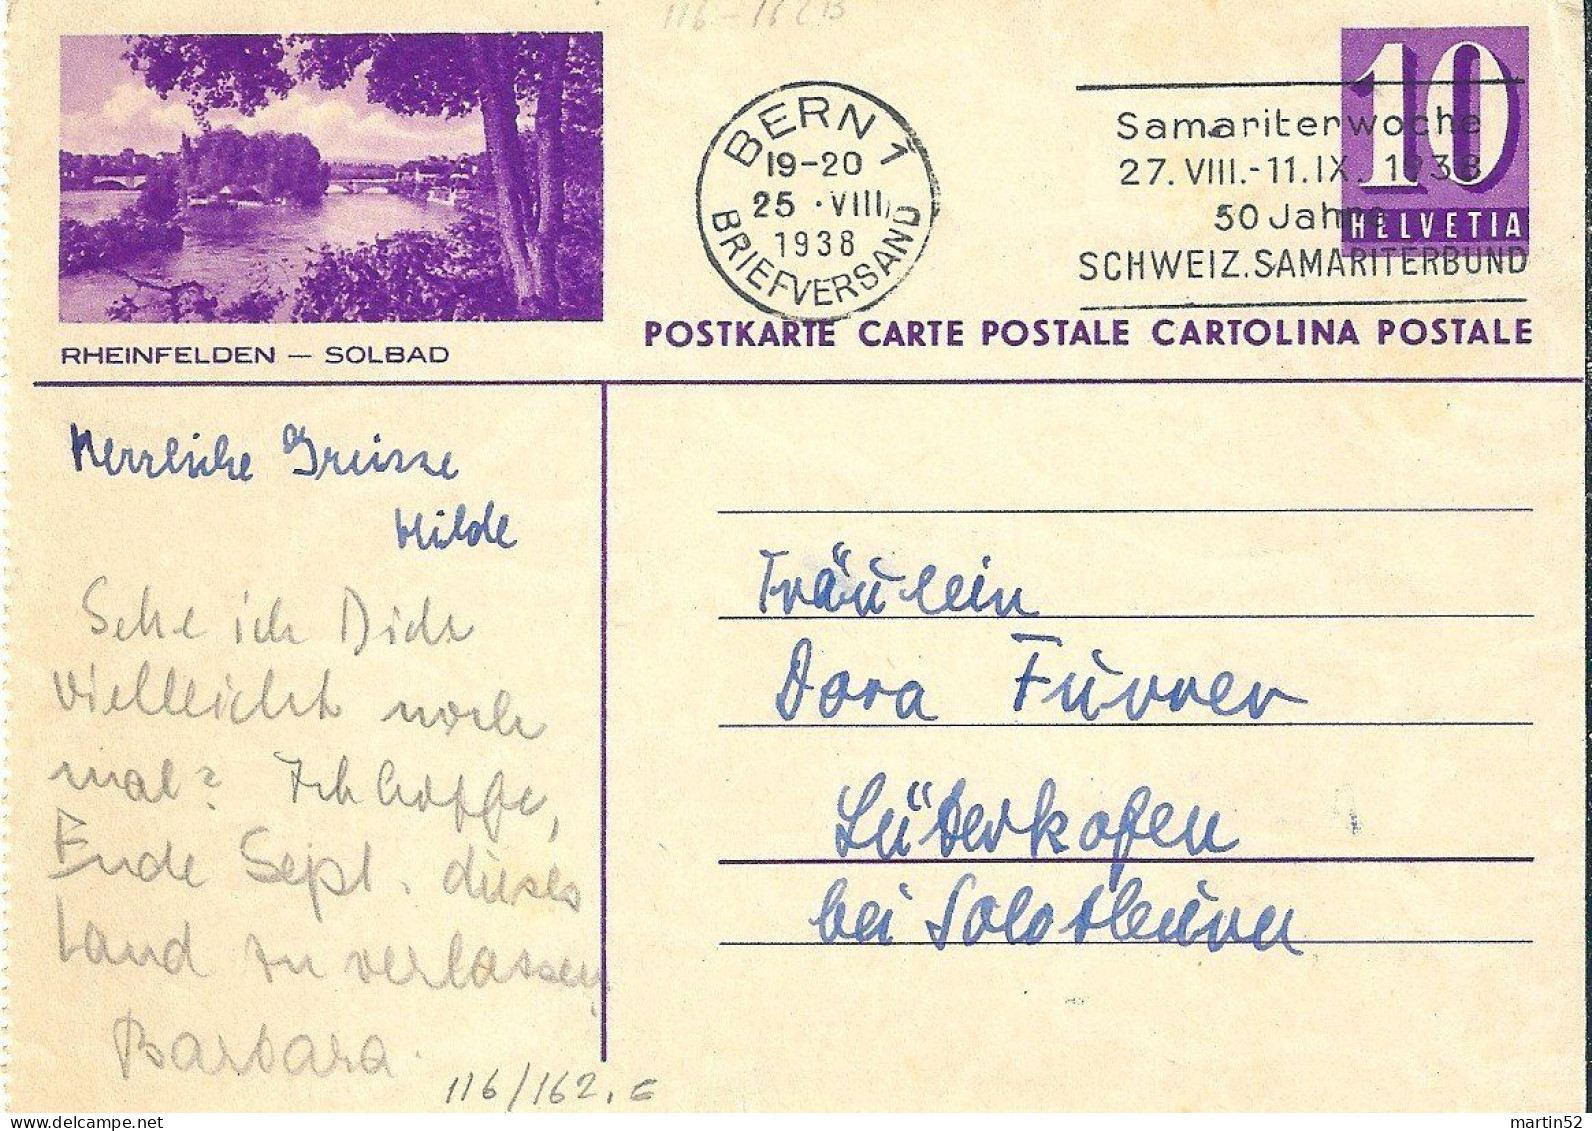 116-162B
10
HELVETIA
BERN 1
19-20
25.VIII
1938
BRIEFVERSAND
Samariterwoche
27.VIII.-11.IX.1938
50 Jahre
SCHWEIZ.SAMARITERBUND
RHEINFELDEN — SOLBAD
POSTKARTE CARTE POSTALE CARTOLINA POSTALE
Herzliche Grüsse
Hilde
Sehe ich Dich
vielleicht noch
mal? Ich hoffe,
Ende Sept. dieses
Land zu verlassen,
Barbara.
116/162.
Fräulein
Dora Furrer
Lüterkofen
bei Solothurn
martin52